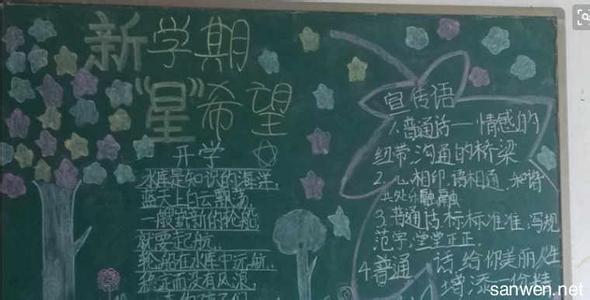 新学期
"星"希望
开学
水库是知识的海洋,
蓝天上白云飘扬,
一艘崭新的轮船
就要起航。
轮船在水库中远航
稳定而没有风浪
宣传语
1.普通话—情感的
纽带,沟通的桥梁
2.心相印,语相通,和谐
共处乐融融
3.普通话标标准准,写规
范字,堂堂正正.
4普通话给你美丽人生
增添一份精
sanwen.net